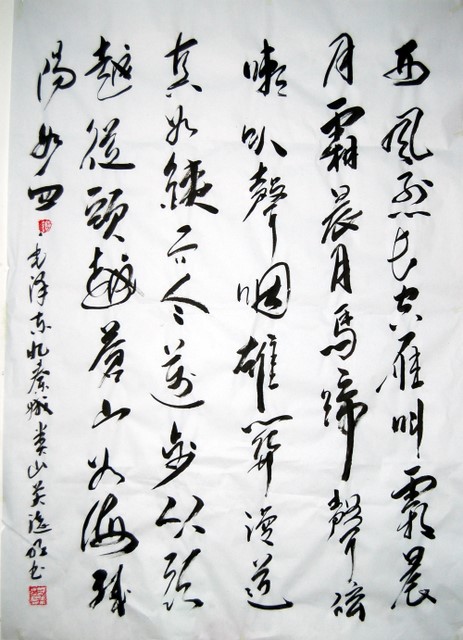 西風烈長空雁叫霜晨
月霜晨月馬蹄聲碎
喇叭聲咽雄關漫道
真如鐵而今邁步從頭
越從頭越蒼山如海殘
陽如血
毛泽东忆秦娥娄山书